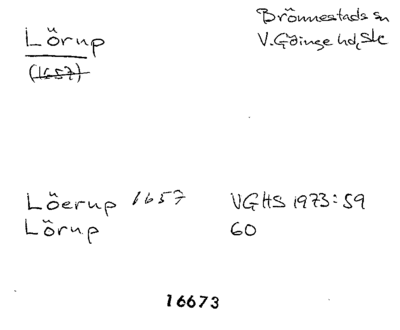 Lörup
(1657)
Brönnestads sn
V. Göinge hd, Sk
Löerup 1657 VGHS 1973:59
Lörup 60
16673